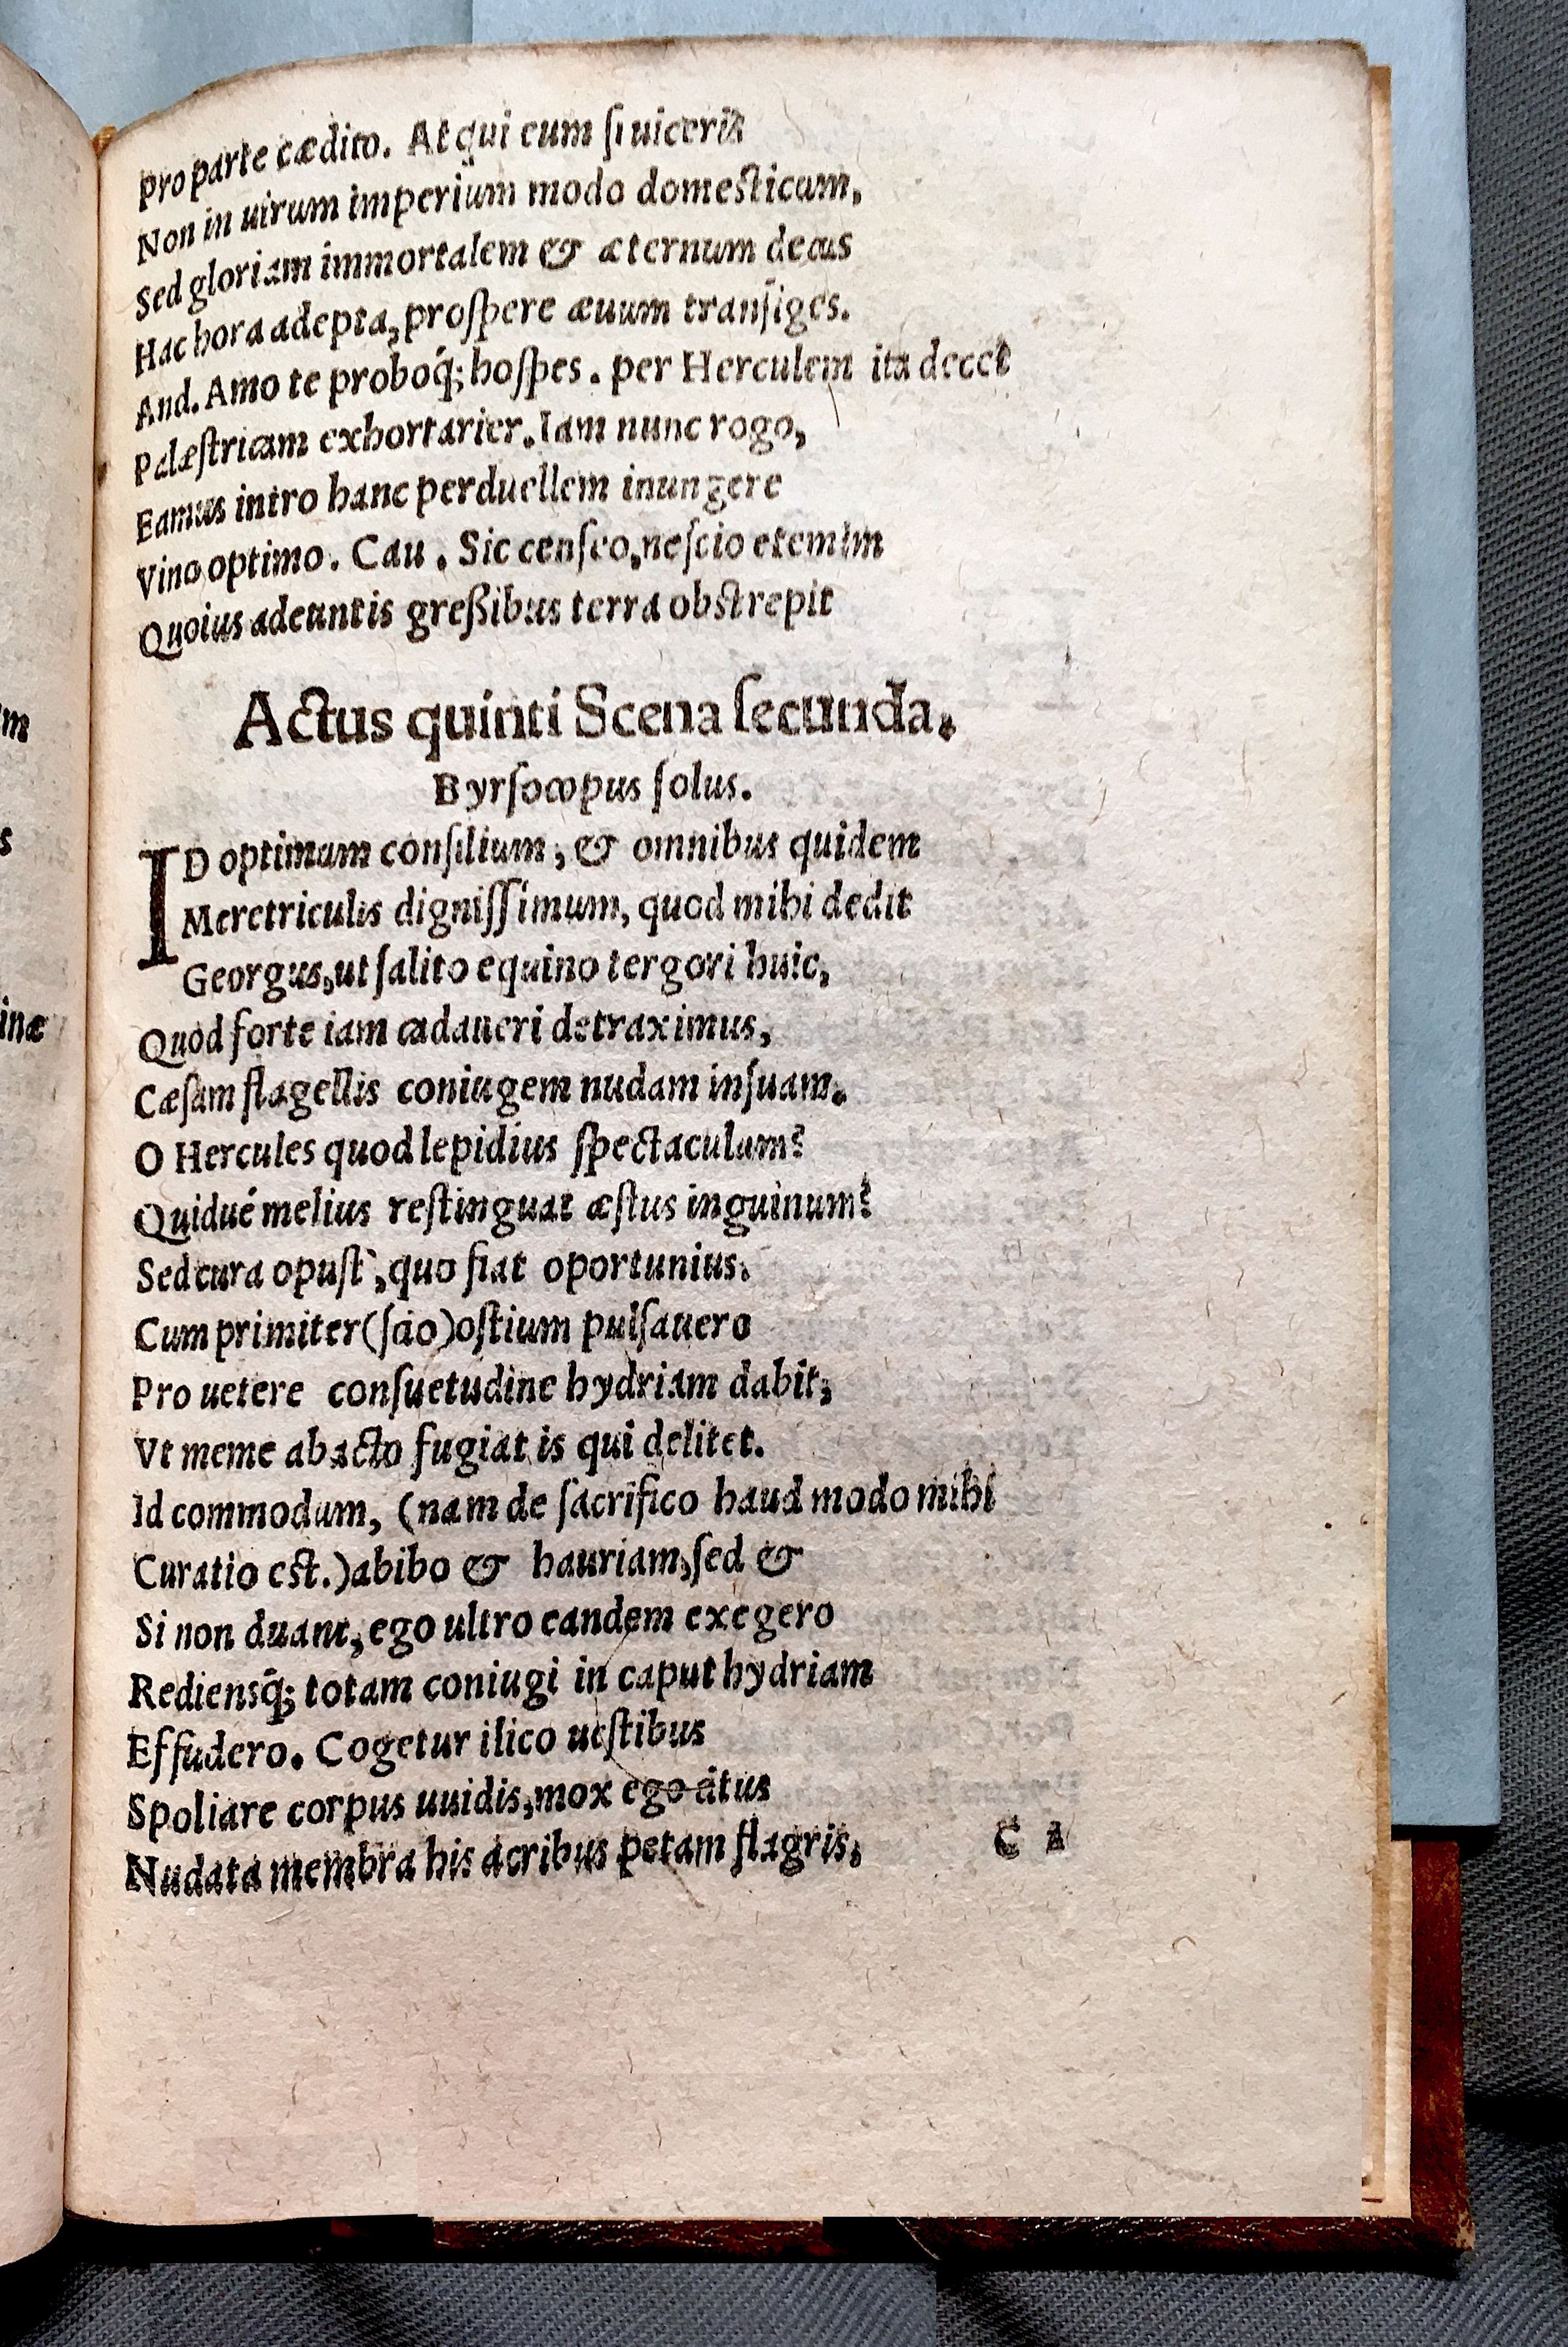 Pro parte cædito. Atqui eum si uiceris
Non in uirum imperium modo domesticum,
Sed gloriam immortalem & æternum decus
Hac hora adepta, prospere æuum transiges.
And. Amo te proboq́; hospes. per Herculem ita decet
Palæstricam exhortarier. Iam nunc rogo,
Eamus intro hanc perduellem inungere
Vino optimo. Cau. Sic censeo, nescio etemim
Quoius adeuntis greßibus terra obstrepit
Actus quinti Scena secunda.
Byrsocopus solus.
ID optimum consilium, & omnibus quidem
Meretriculis dignissimum, quod mihi dedit
Georgus, ut salito equino tergori huic,
Quod forte iam cadaueri detraximus,
Cæsam flagellis coniugem nudam insuam.
O Hercules quod lepidius spectaculum?
Quidué melius restinguat æstus inguinum?
Sed cura opust`, quo fiat oportunius.
Cum primiter (scio) ostium pulsauero
Pro uetere consuetudine hydriam dabit;
Vt meme abacto fugiat is qui delitet.
Id commodum, (nam de sacrifico haud modo mihi
Curatio est.) abibo & hauriam, sed &
Si non duant, ego ultro eandem exegero
Rediensq́; totam coniugi in caput hydriam
Effudero. Cogetur ilico uestibus
Spoliare corpus uuidis, mox ego citus
Nudata membra his acribus petam flagris,
C
inæ
m
s